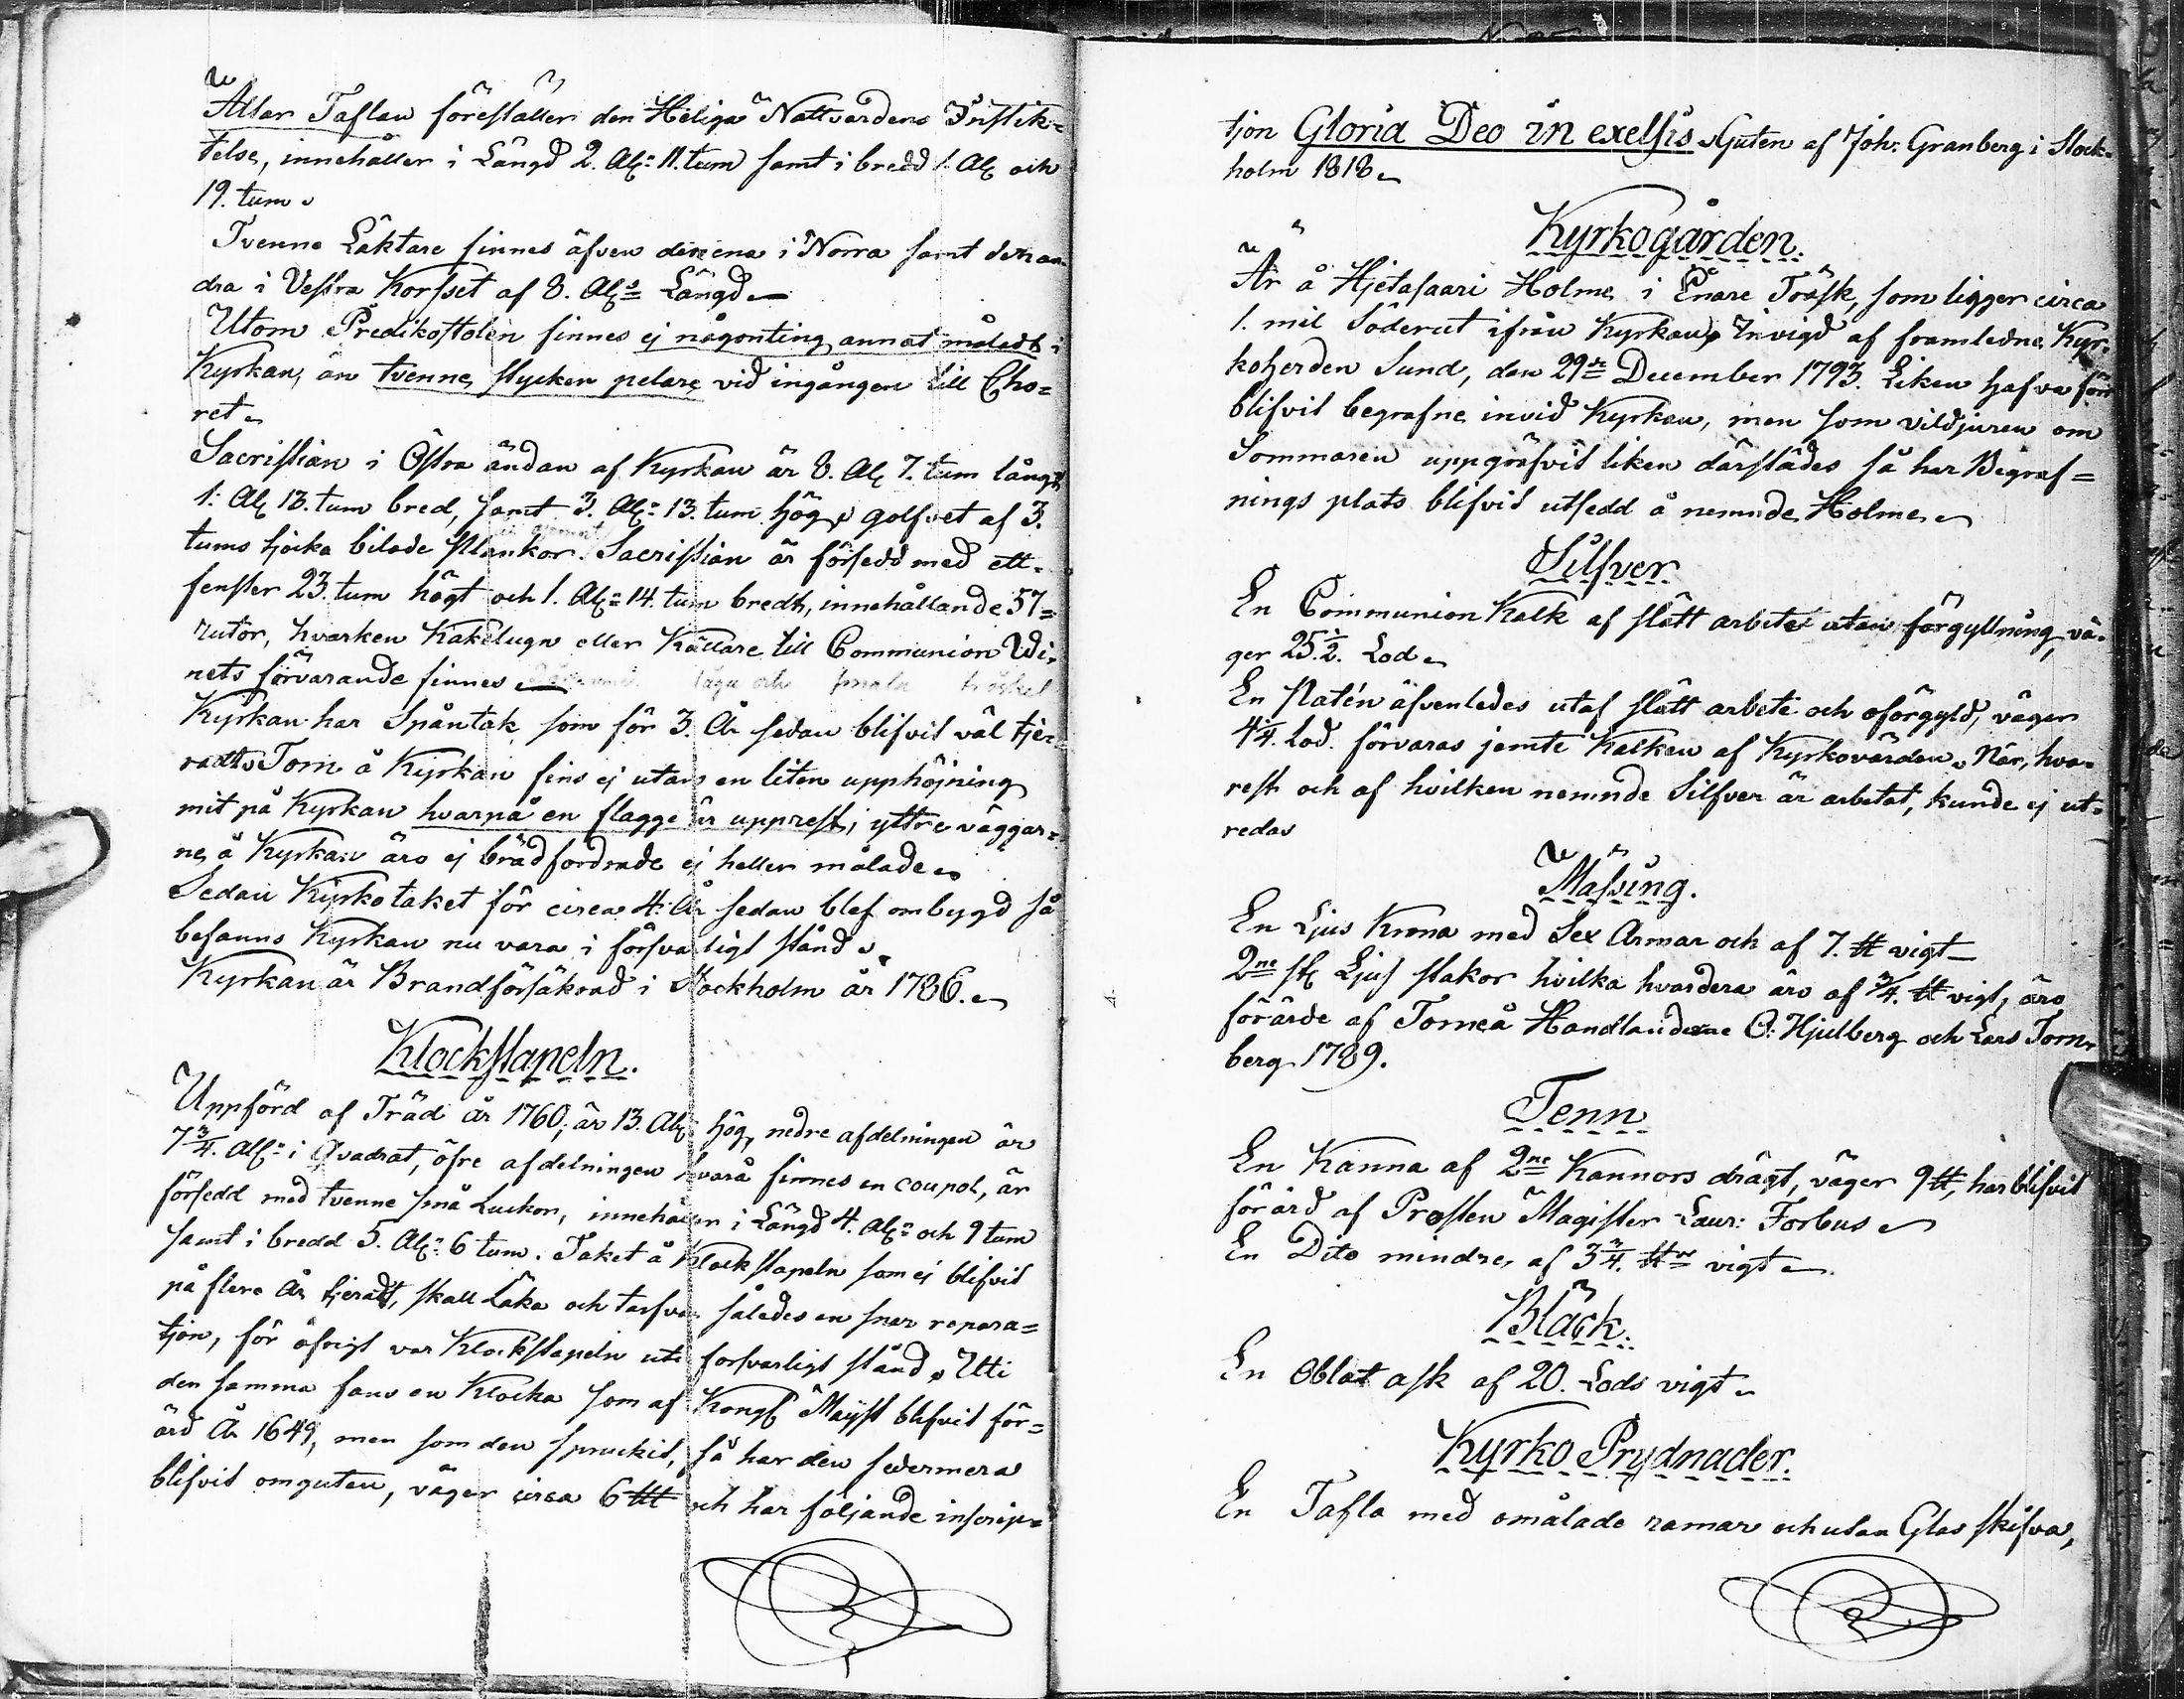 Altar Taflan föreställer den Heliga Nattvardens Instik=
telse, innehåller i Längd 2. Aln: 11. tum samt i bredd 1. Aln och
19. tum.
Tvenne Läktare finnes äfven den ena i Norra samt den an
dra i Vestra Korsset af 8. Alns Längd
Utom Predikostolen finnes ej någonting annat måladt i
Kyrkan, än tvenne stycken pelare vid ingången till Cho=
ret
Sacristian i Östra ändan af Kyrkan är 8. Aln 7. tum lång,
1: Aln 13. tum bred, samt 3. Aln: 13. tum hög, golfvet af 3.
tums tjocka bilade Plankor. Sacristian är försedd med ett
fenster 23. tum högt och 1. Aln: 14. tum bredt, innehållande 57=
rutor, hvarken Kakelugn eller Källare till Communion Wi=
nets förvarande finnes
Kyrkan har Spåntak, som för 3. År sedan blifvit väl tjä=
radt. Torn å Kyrkan fins ej utan en liten upphöjning
mit på Kyrkan hvarpå en flagge är upprest, yttre väggar=
ne å Kyrkan äro ej brädfordrade ej heller målade
Sedan Kyrkotaket för circa 4: År sedan blef ombygd så
befanns Kyrkan nu vara i försvarligt stånd
Kyrkan är Brandförsäkrad i Stockholm år 1786.
Klockstapeln.
Uppförd af Träd år 1760, är 13. Aln hög, nedre afdelningen är
7 3/4. Aln: i Qvadrat, öfre afdelningen hvarå finnes en coupol, är
försedd med tvenne små Luckor, innehåller i Längd 4. Aln: och 9 tum
samt i bredd 5. Aln: 6 tum. Taket å Klockstapeln som ej blifvit
på flere År tjeradt, skall Läka och tarfvar således en snar repara=
tjon, för öfrigt var Klockstapeln uti forsvarligt stånd. Uti
den samma fans en Klocka som af Kongl Mayst blifvit för=
ärd År 1649, men som den spruckit, så har den sedermera
blifvit omguten, väger circa 6 och har följande inscrip=
tjon Gloria Deo in exelsis. Guten af Joh: Granberg i Stock=
holm 1818
Kyrkogården.
Är å Hjetasaari Holme i Enare Träsk, som ligger circa
1. mil Söderut ifrån Kyrkan, Invigd af framledne Kyr=
koherden Sund, den 29de December 1793. Liken hafva förr
blifvit begrafne invid Kyrkan, men som vildjuren om
Sommaren uppgräfvit liken därstädes så har Begraf=
nings plats blifvid utsedd å nemnde Holme
Silfver.
En Communion Kalk af slätt arbete utan förgyllning, vä=
ger 25. 1/2. Lod
En Patén äfvenledes utaf slätt arbete och oförgyld, väger
4 1/4. Lod. förvaras jemte Kalken af Kyrkovärden. När, hva=
rest och af hvilken nemnde Silfver är arbetat, kunde ej ut=
redas
Mässing.
En Ljus Krona med Sex Armar och af 7. ℔ vigt
2ne st Ljus stakor hvilka hvardera äro af 3/4. ℔ vigt, äro
förärde af Torneå Handlanderne O: Hjulberg och Lars Torn=
berg 1789.
Tenn
En Kanna af 2ne Kannors drägt, väger 9 ℔, har blifvit
förärd af Prosten Magister Laur: Forbus
En Dito mindre, af 3 3/4. ℔ vigt
Bläck.
En Oblat ask af 20. Lods vigt
Kyrko Prydnader.
En Tafla med omålade ramar och utan Glas skifva,